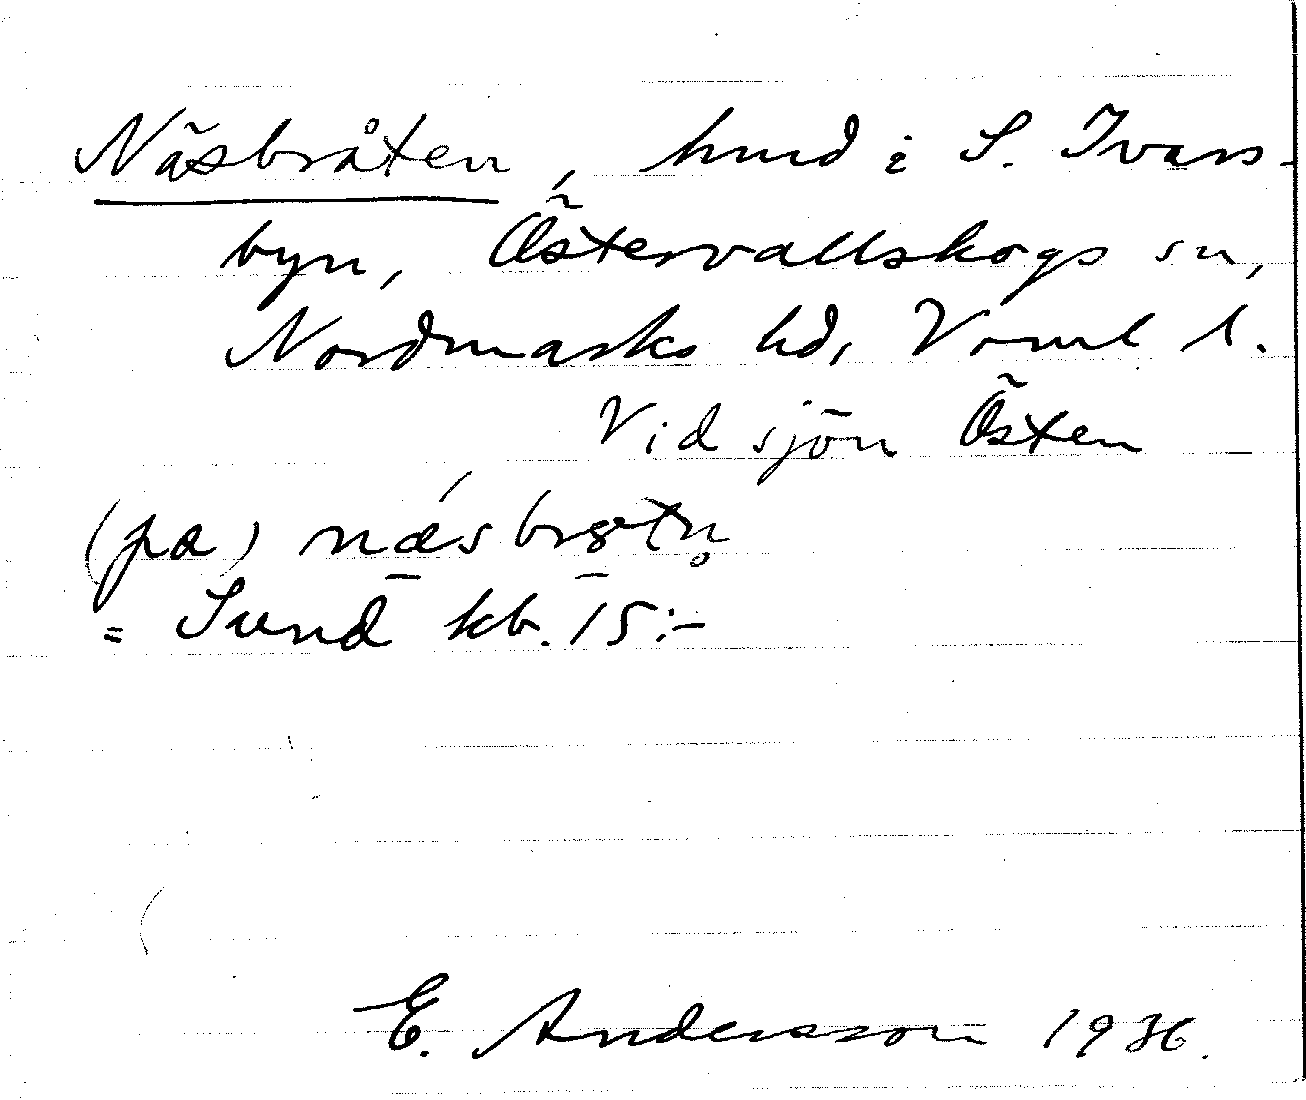 Näsbråten, hmd i S. Ivars-
byn, Östervallskogs sn,
Nordmarks hd, Vrml l.
Vid sjön Östen
(pa) næsbrøtn̥
= Sund kb. 15:-
E. Andersson 1936.